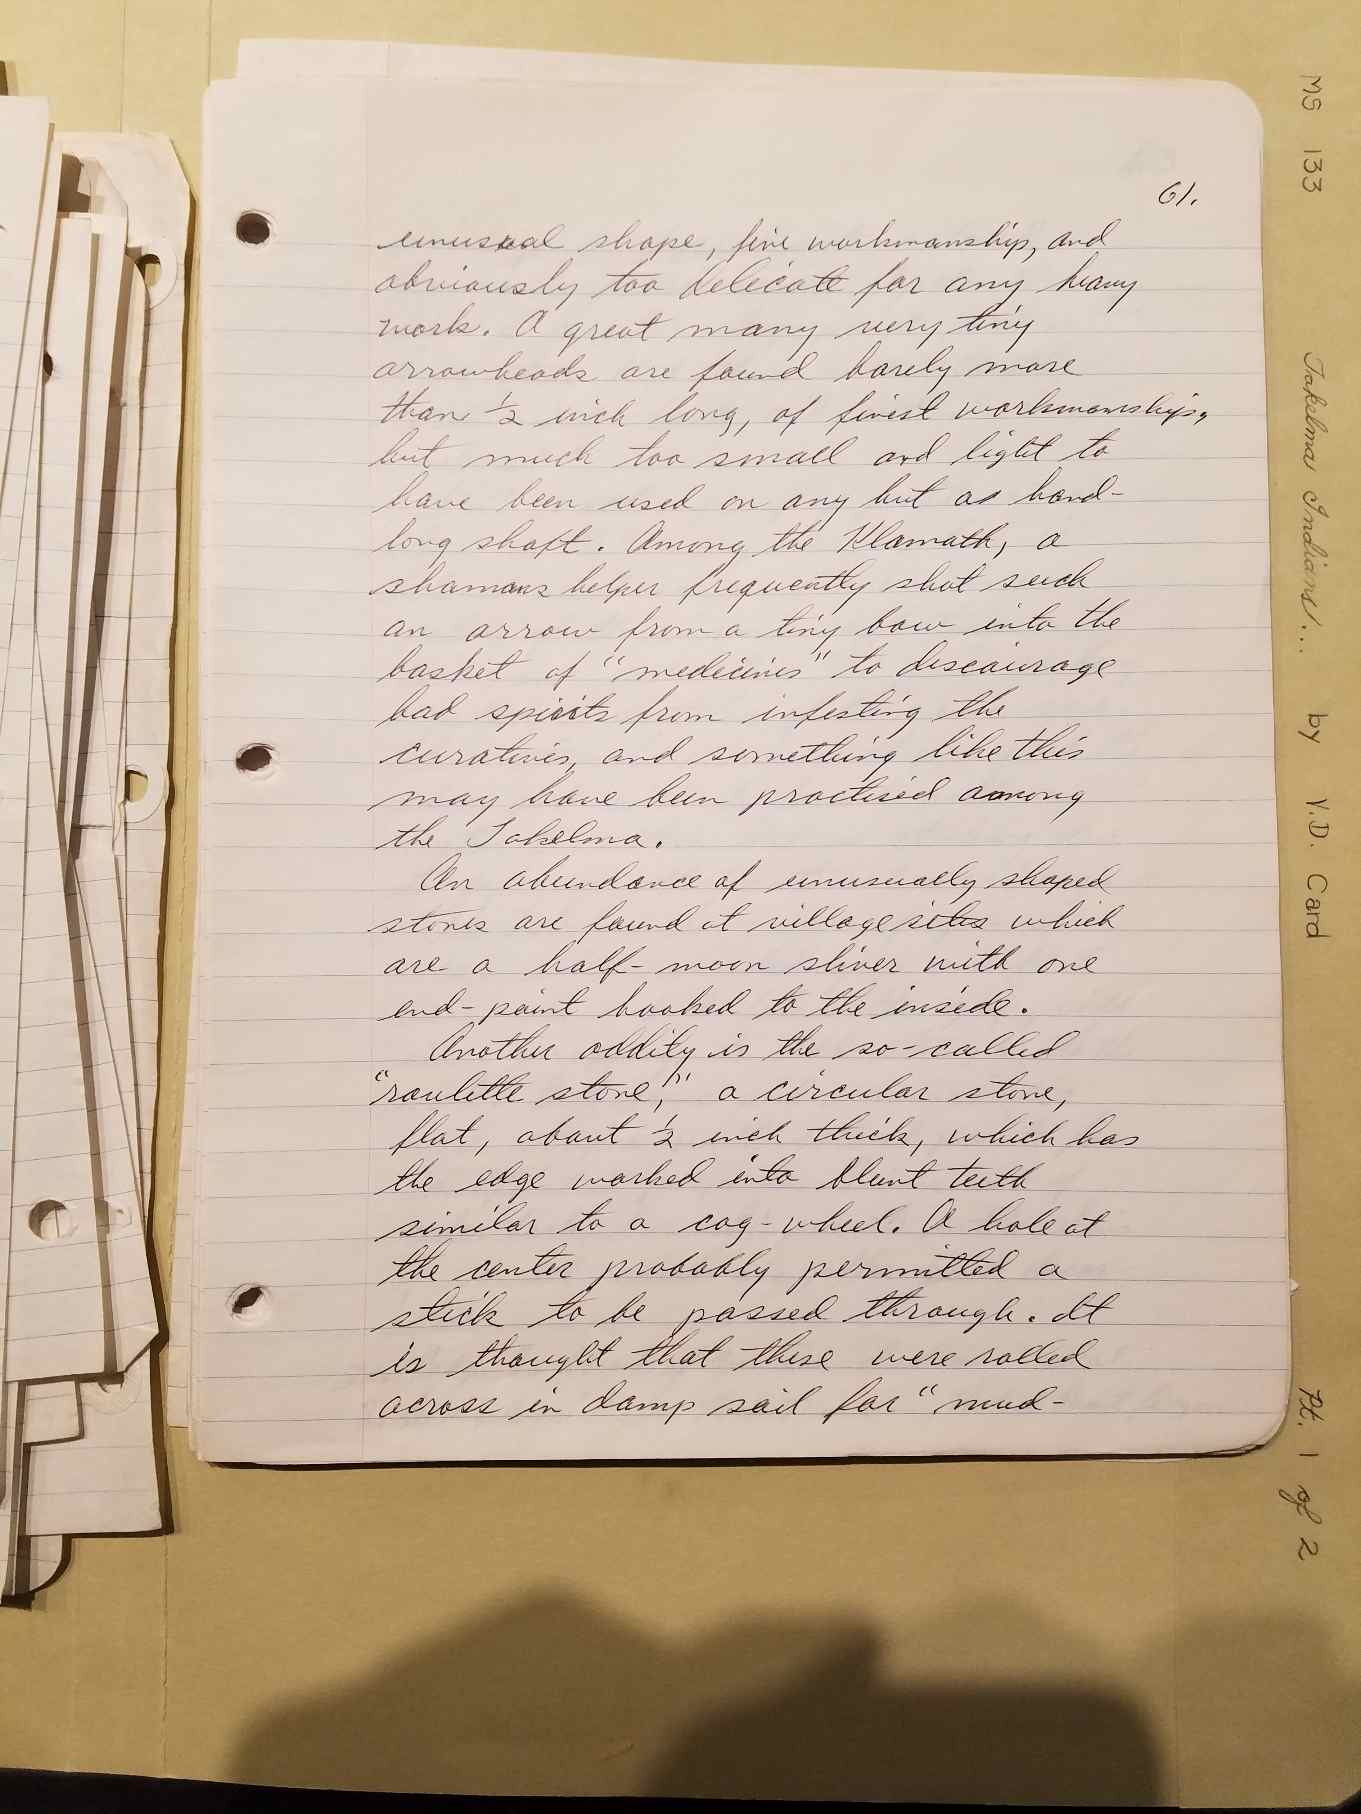 61.
unusual shape, fine workmanship, and
obviously too delicate for any heavy
work. A great many very tiny
arrowheads are found barely more
than ½ inch long, of finest workmanship,
but much too small and light to
have been used on any but a hand-
long shaft. Among the Klamath, a
shamans helper frequently shot such
an arrow from a tiny bow into the
basket of "medicines" to discourage
bad spirits from infesting the
curatives, and something like this
may have been practised among
the Takelma.
An abundance of unusually shaped
stones are found at village sites which
are a half-moon sliver with one
end-point hooked to the inside.
Another oddity is the so-called
"roulette stone," a circular stone,
flat, about ½ inch thick, which has
the edge worked into blunt teeth
similar to a cog-wheel. A hole at
the center probably permitted a
stick to be passed through. It
is thought that these were rolled
across in damp soil for "mud-
MS 133 Takelma Indians... by V.D. Card Pt. 1 of 2